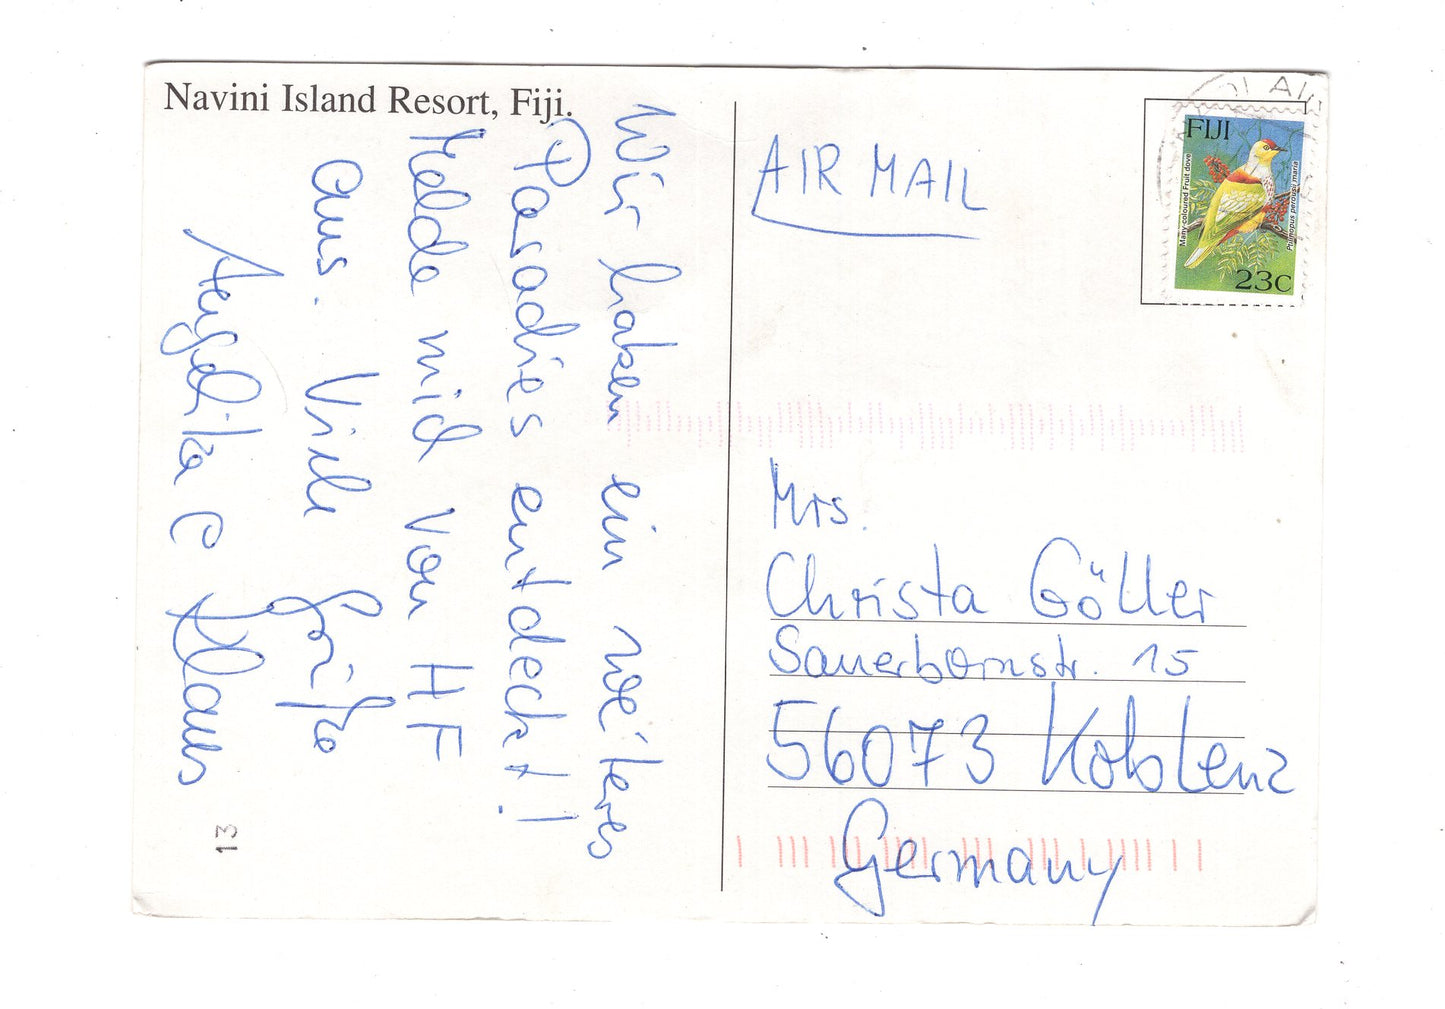 Navini Island Resort, Fiji.
Wir haben ein weiteres
Paradies entdeckt!
Melde mich von HF
aus. Viele Grüße
Angelika & Klaus
13
AIR MAIL
DI AI
FIJI
Many-coloured Fruit dove
Ptilinopus perousii mariae
23c
Mrs.
Christa Göller
Sauerbornstr. 15
56073 Koblenz
Germany